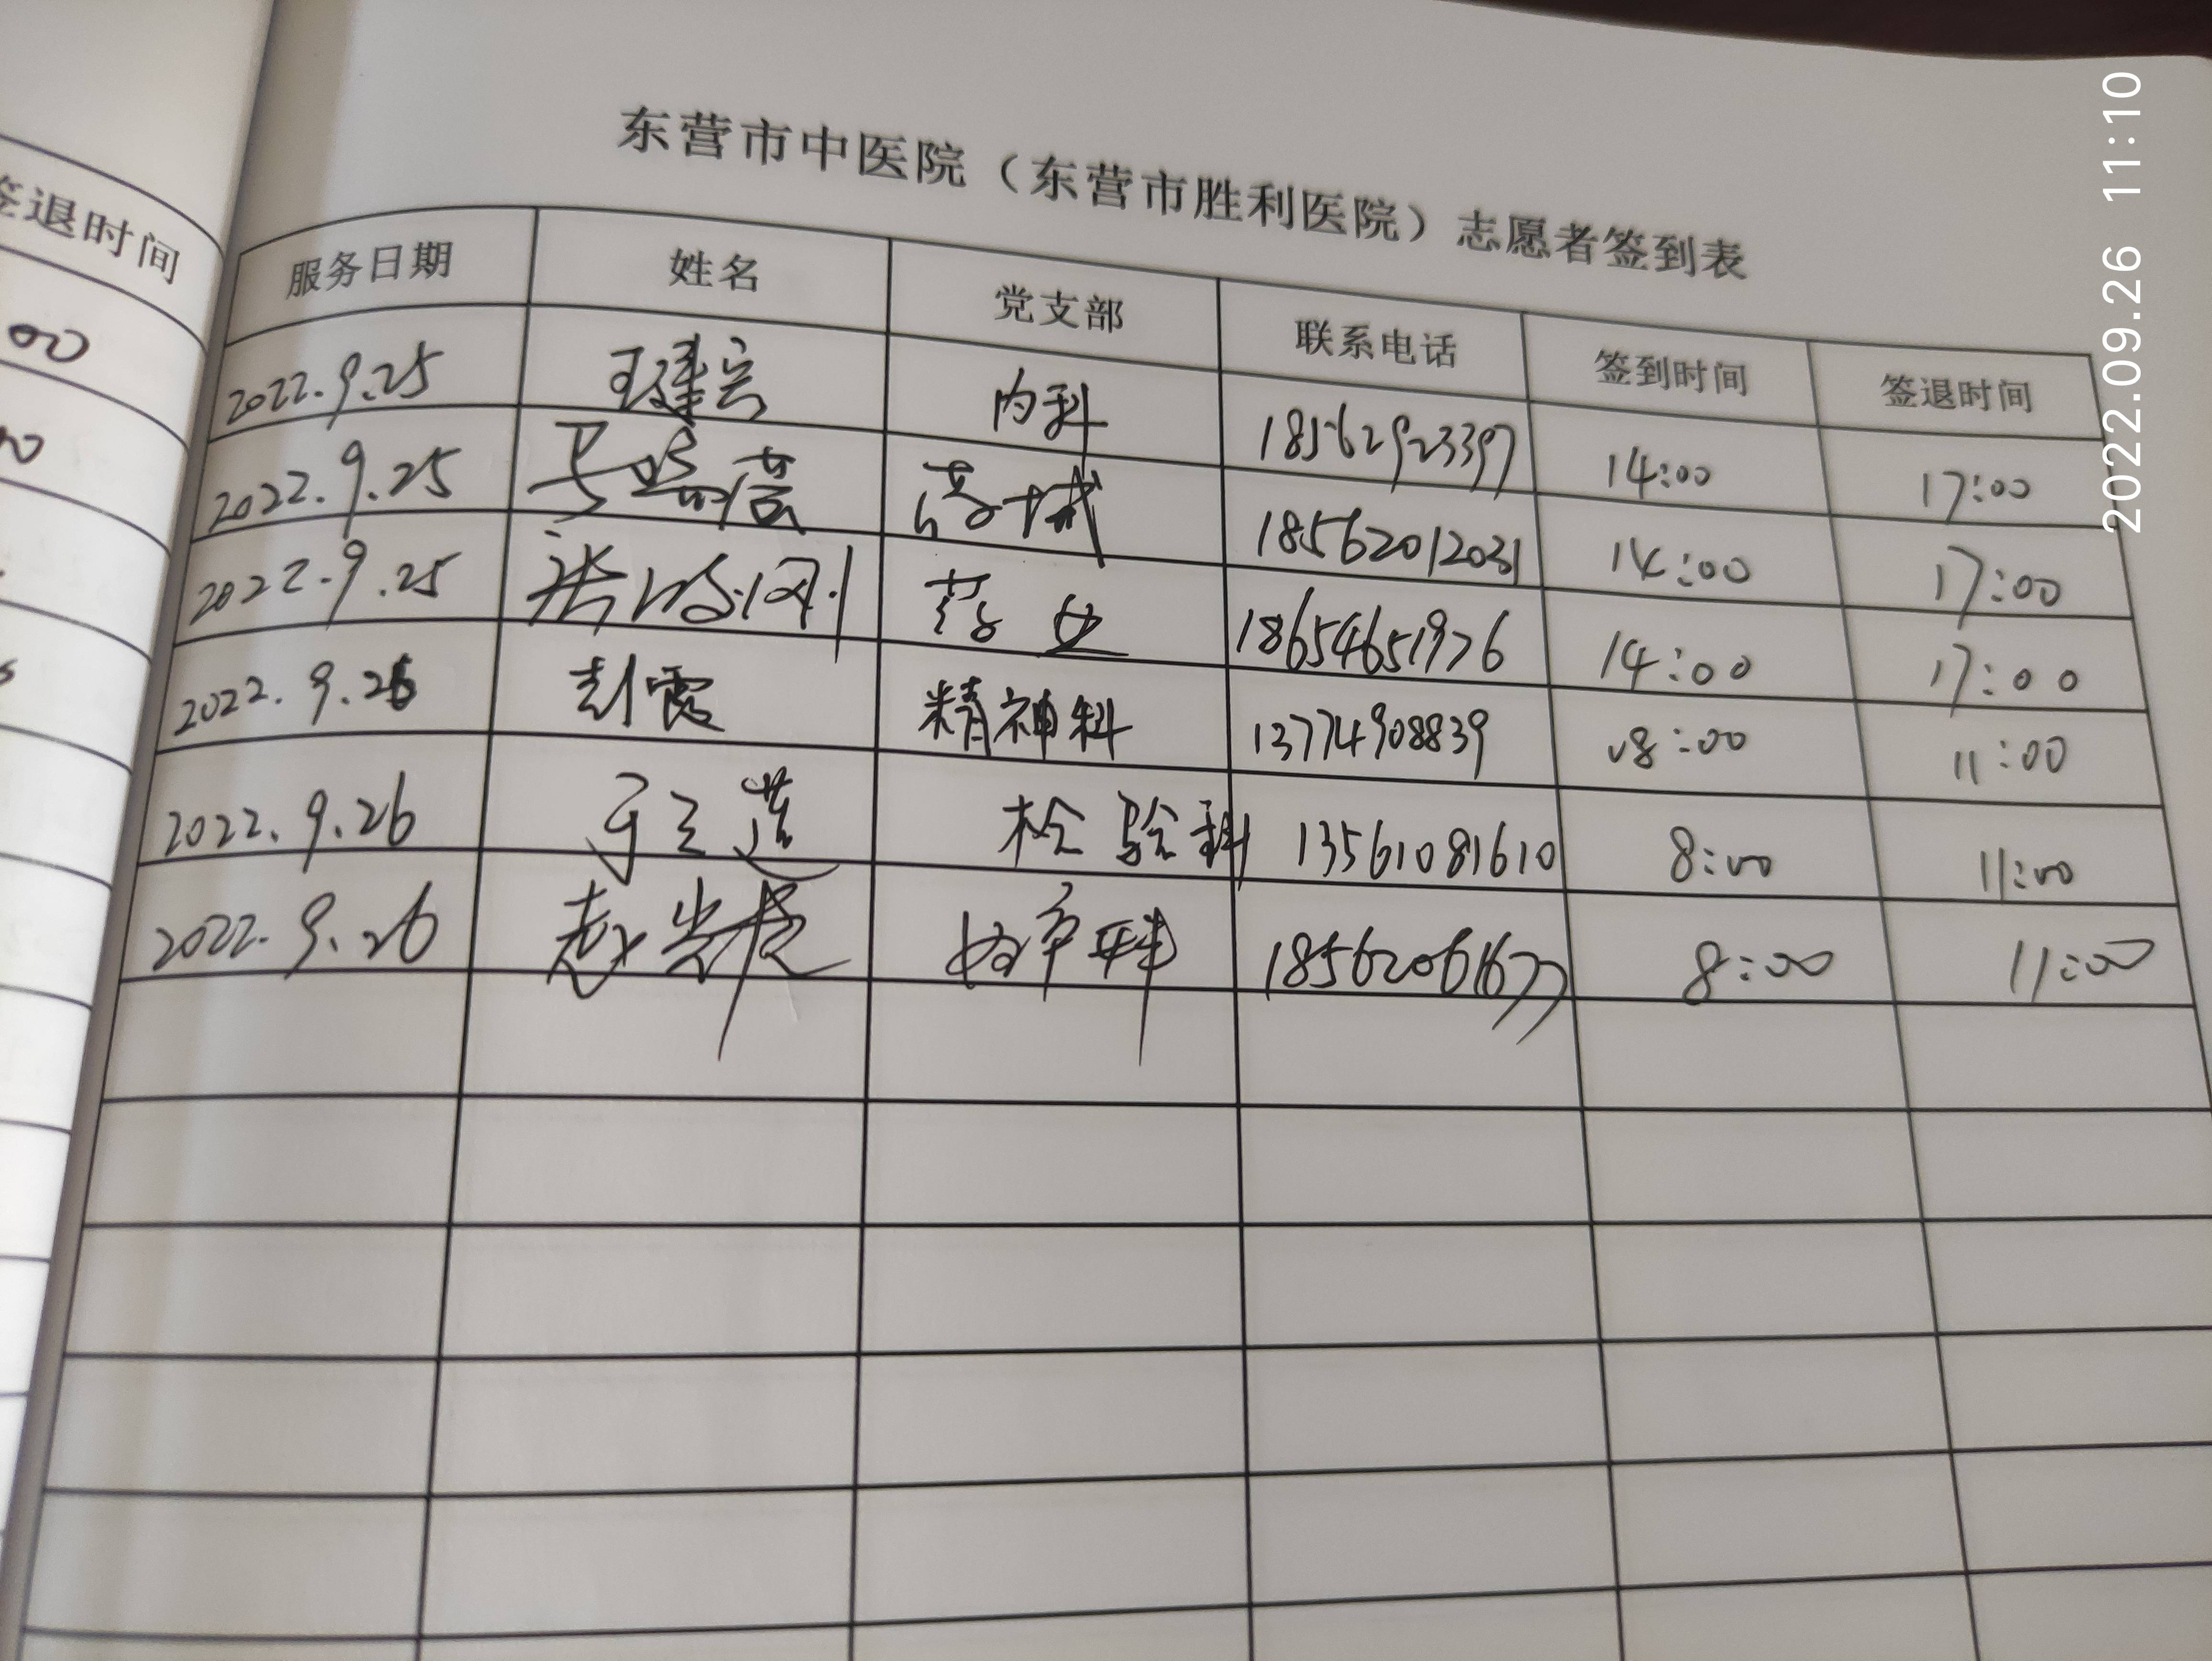 签退时间
00
东营市中医院（东营市胜利医院）志愿者签到表
服务日期 姓名 党支部 联系电话 签到时间 签退时间
2022.9.25 内科 18562923397 14:00 17:00
2022.9.25 18562012031 14:00 17:00
2022.9.25 18654651976 14:00 17:00
2022.9.26 彭霞 精神科 13774908839 08:00 11:00
2022.9.26 于兰莲 检验科 13561081610 8:00 11:00
2022.9.26 赵 18562061677 8:00 11:00
2022.09.26 11:10